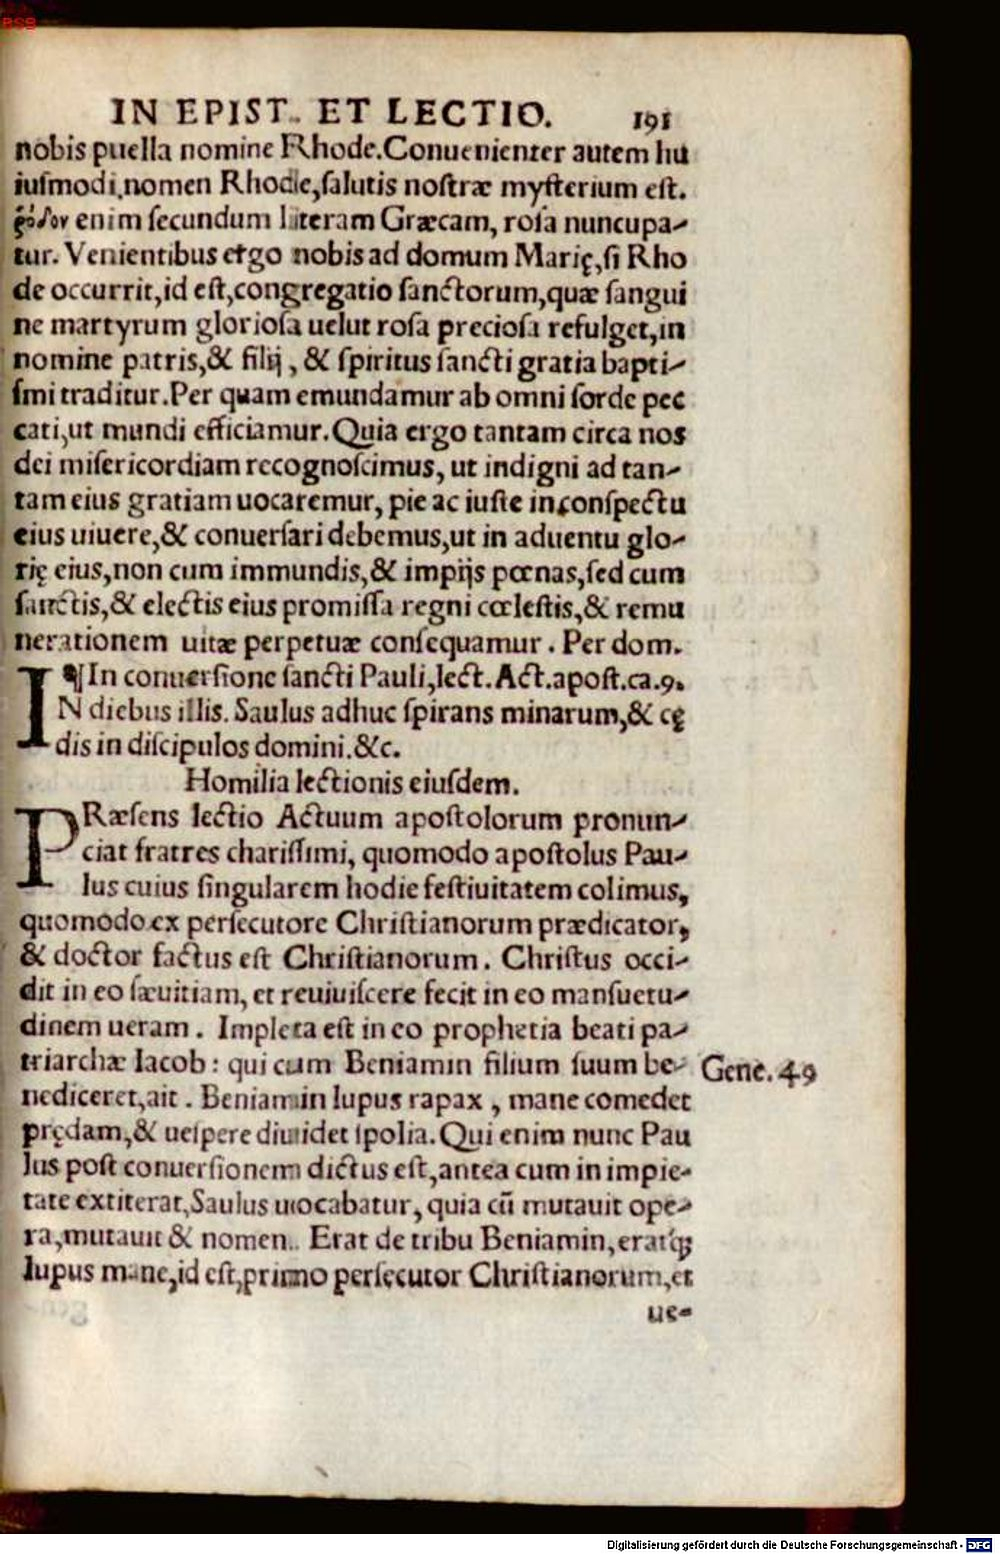 IN EPIST. ET LECTIO. 191
nobis puella nomine Rhode. Conuenienter autem hu
iusmodi, nomen Rhode, salutis nostræ mysterium est.
ῥόδον enim secundum literam Græcam, rosa nuncupa-
tur. Venientibus ergo nobis ad domum Marię, si Rho
de occurrit, id est, congregatio sanctorum, quæ sangui
ne martyrum gloriosa uelut rosa preciosa refulget, in
nomine patris, & filij, & spiritus sancti gratia bapti-
smi traditur. Per quam emundamur ab omni sorde pec
cati, ut mundi efficiamur. Quia ergo tantam circa nos
dei misericordiam recognoscimus, ut indigni ad tan-
tam eius gratiam uocaremur, pie ac iuste in conspectu
eius uiuere, & conuersari debemus, ut in aduentu glo-
rię eius, non cum immundis, & impijs pœnas, sed cum
sanctis, & electis eius promissa regni cœlestis, & remu
nerationem uitæ perpetuæ consequamur. Per dom.
¶ In conuersione sancti Pauli, lect. Act. apost. ca. 9.
IN diebus illis. Saulus adhuc spirans minarum, & cę
dis in discipulos domini. &c.
Homilia lectionis eiusdem.
PRæsens lectio Actuum apostolorum pronun-
ciat fratres charissimi, quomodo apostolus Pau-
lus cuius singularem hodie festiuitatem colimus,
quomodo ex persecutore Christianorum prædicator,
& doctor factus est Christianorum. Christus occi-
dit in eo sæuitiam, et reuiuiscere fecit in eo mansuetu-
dinem ueram. Impleta est in eo prophetia beati pa-
triarchæ Iacob: qui cum Beniamin filium suum be-
Gene. 49
nediceret, ait. Beniamin lupus rapax, mane comedet
prędam, & uespere diuidet spolia. Qui enim nunc Pau
lus post conuersionem dictus est, antea cum in impie-
tate extiterat, Saulus uocabatur, quia cū mutauit ope-
ra, mutauit & nomen. Erat de tribu Beniamin, eratq́;
lupus mane, id est, primo persecutor Christianorum, et
ue-
BSB
Digitalisierung gefördert durch die Deutsche Forschungsgemeinschaft - DFG